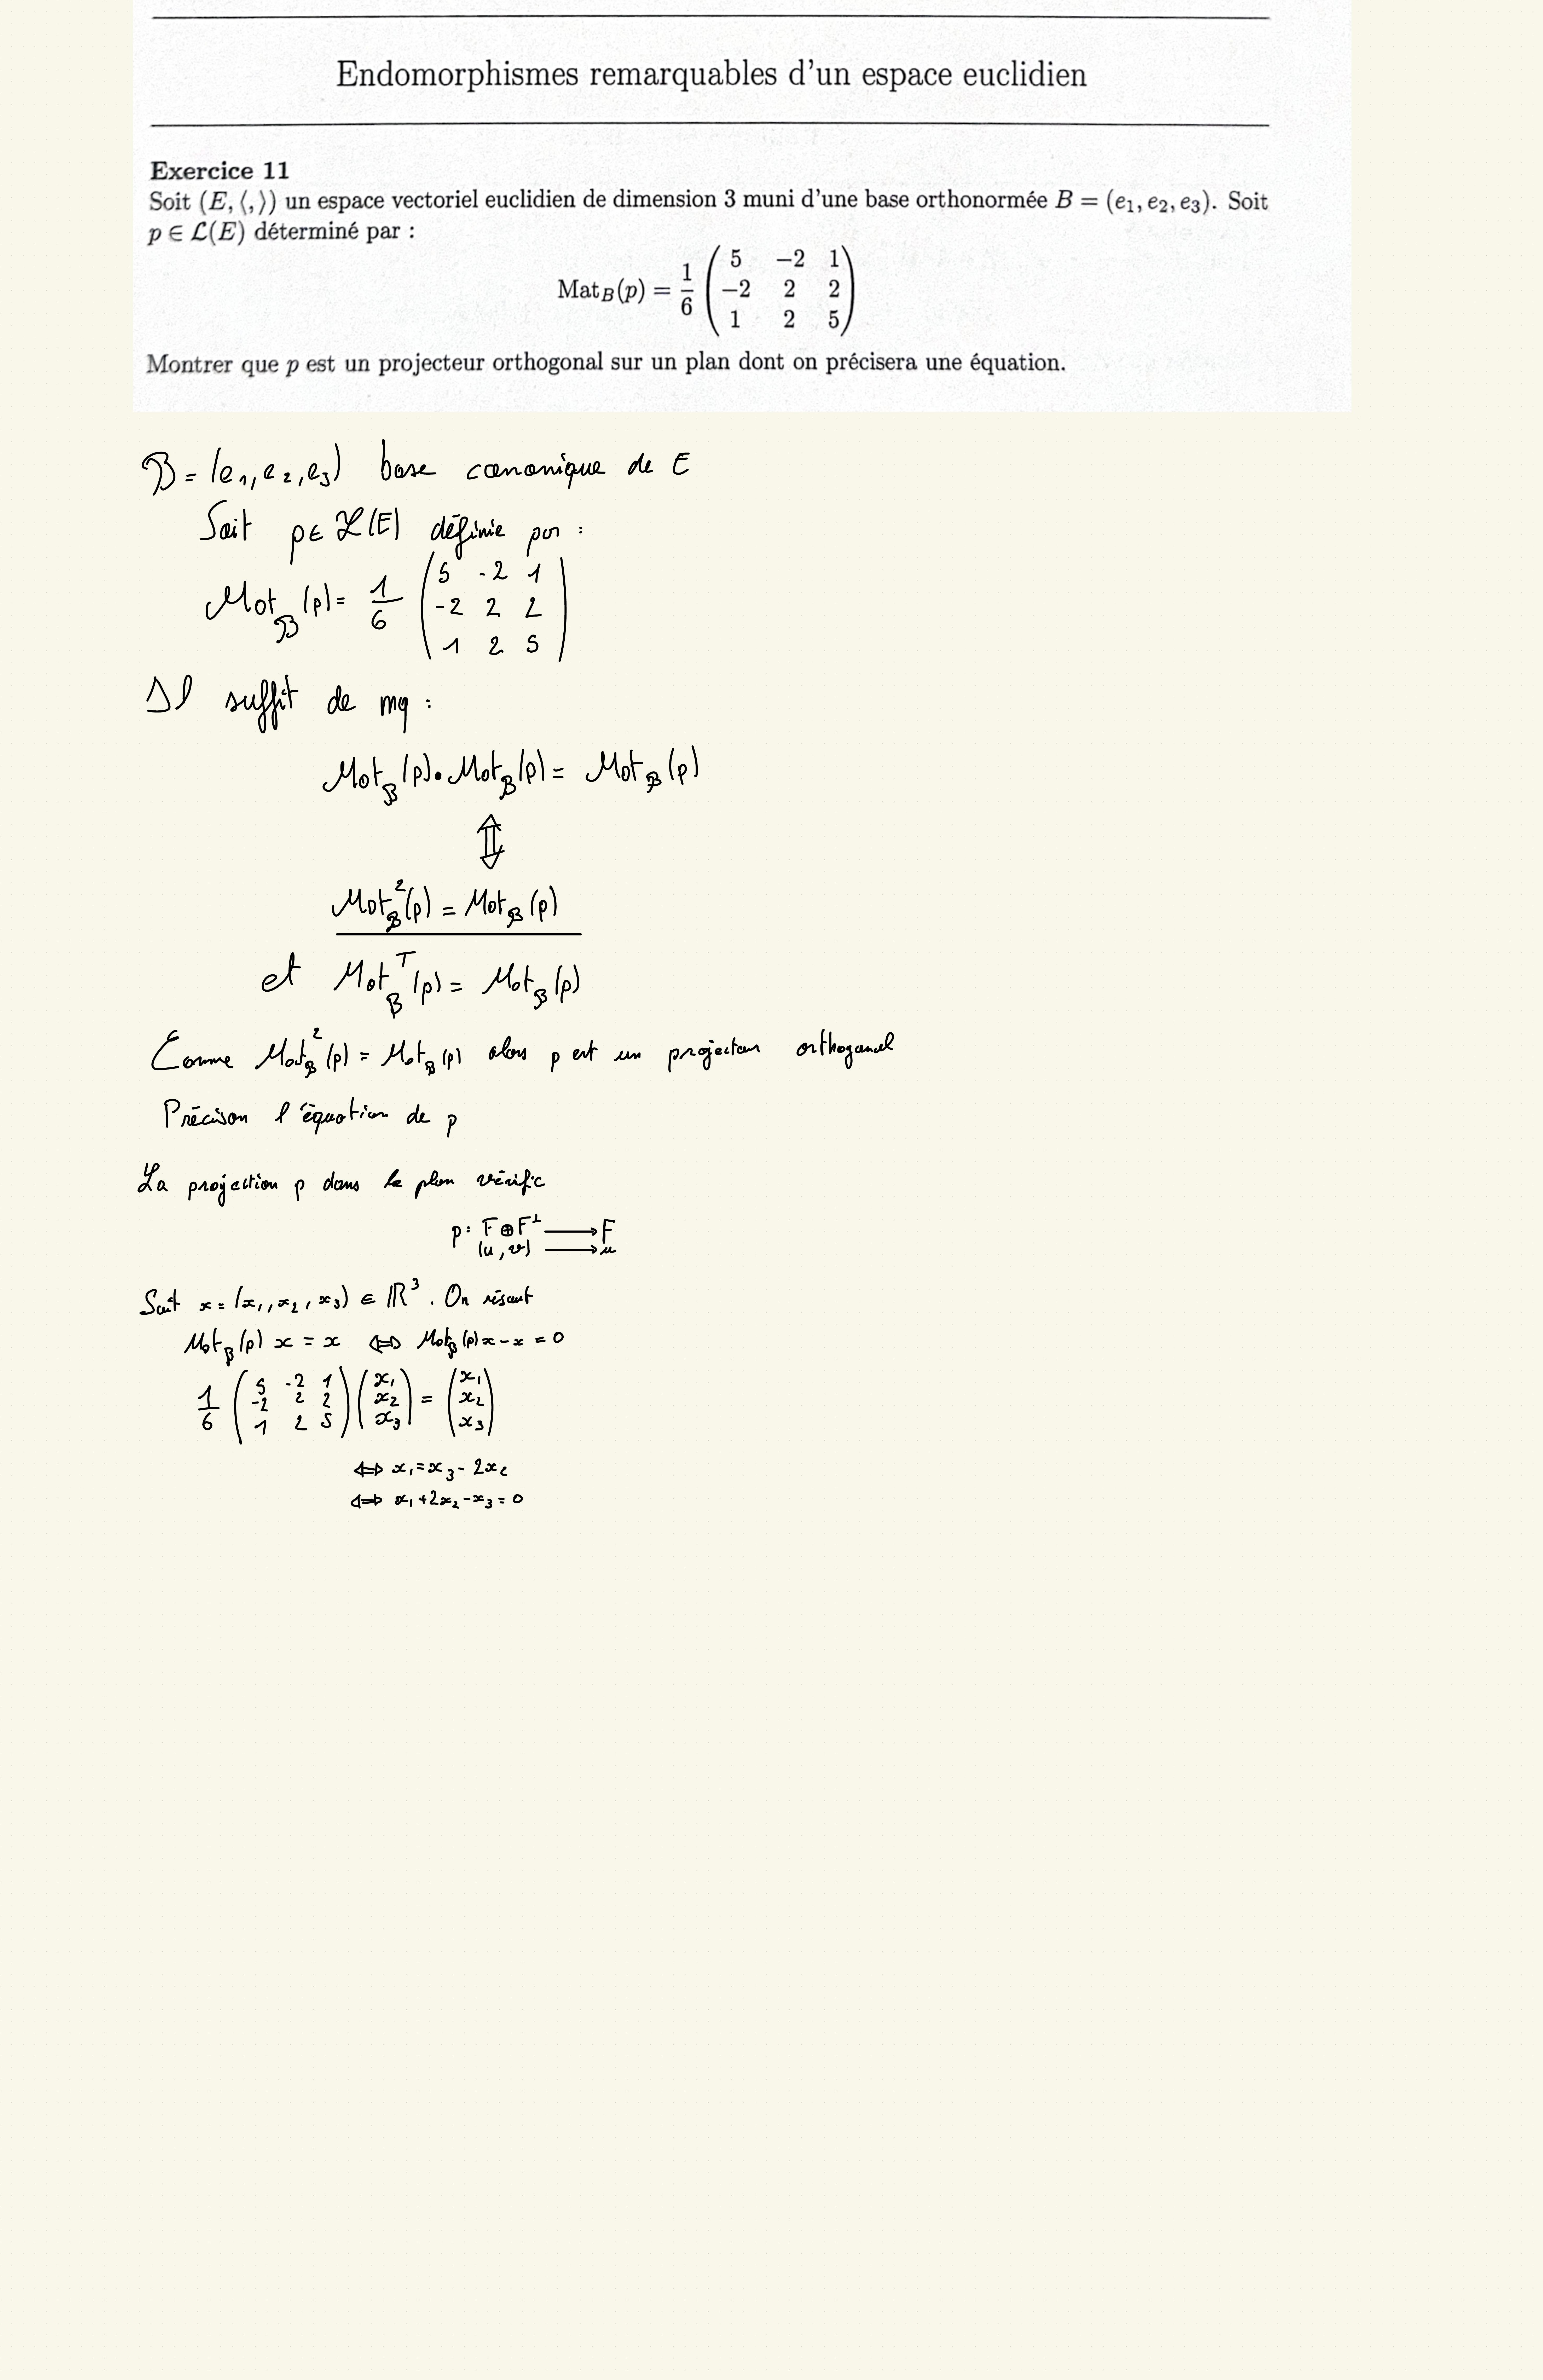 Endomorphismes remarquables d'un espace euclidien
Exercice 11
Soit (E, ⟨,⟩) un espace vectoriel euclidien de dimension 3 muni d'une base orthonormée B = (e₁, e₂, e₃). Soit
p ∈ ℒ(E) déterminé par :
Mat_B(p) = 1/6 ( 5 −2 1 ; −2 2 2 ; 1 2 5 )
Montrer que p est un projecteur orthogonal sur un plan dont on précisera une équation.
ℬ = (e₁, e₂, e₃) base canonique de E
Soit p ∈ ℒ(E) définie par :
Mat_ℬ(p) = 1/6 ( 5 -2 1 ; -2 2 2 ; 1 2 5 )
Il suffit de mq :
Mat_ℬ(p) • Mat_ℬ(p) = Mat_ℬ(p)
⇕
Mat²_ℬ(p) = Mat_ℬ(p)
et Mat^T_ℬ(p) = Mat_ℬ(p)
Comme Mat²_ℬ(p) = Mat_ℬ(p) alors p est un projecteur orthogonal
Précison l'équation de p
La projection p dans le plan vérific
p : F ⊕ F^⊥ ⟶ F
(u, v) ⟶ u
Soit x = (x₁, x₂, x₃) ∈ ℝ³. On résout
Mat_ℬ(p) x = x ⇔ Mat_ℬ(p) x - x = 0
1/6 ( 5 -2 1 ; -2 2 2 ; 1 2 5 ) ( x₁ ; x₂ ; x₃ ) = ( x₁ ; x₂ ; x₃ )
⇔ x₁ = x₃ - 2x₂
⇔ x₁ + 2x₂ - x₃ = 0